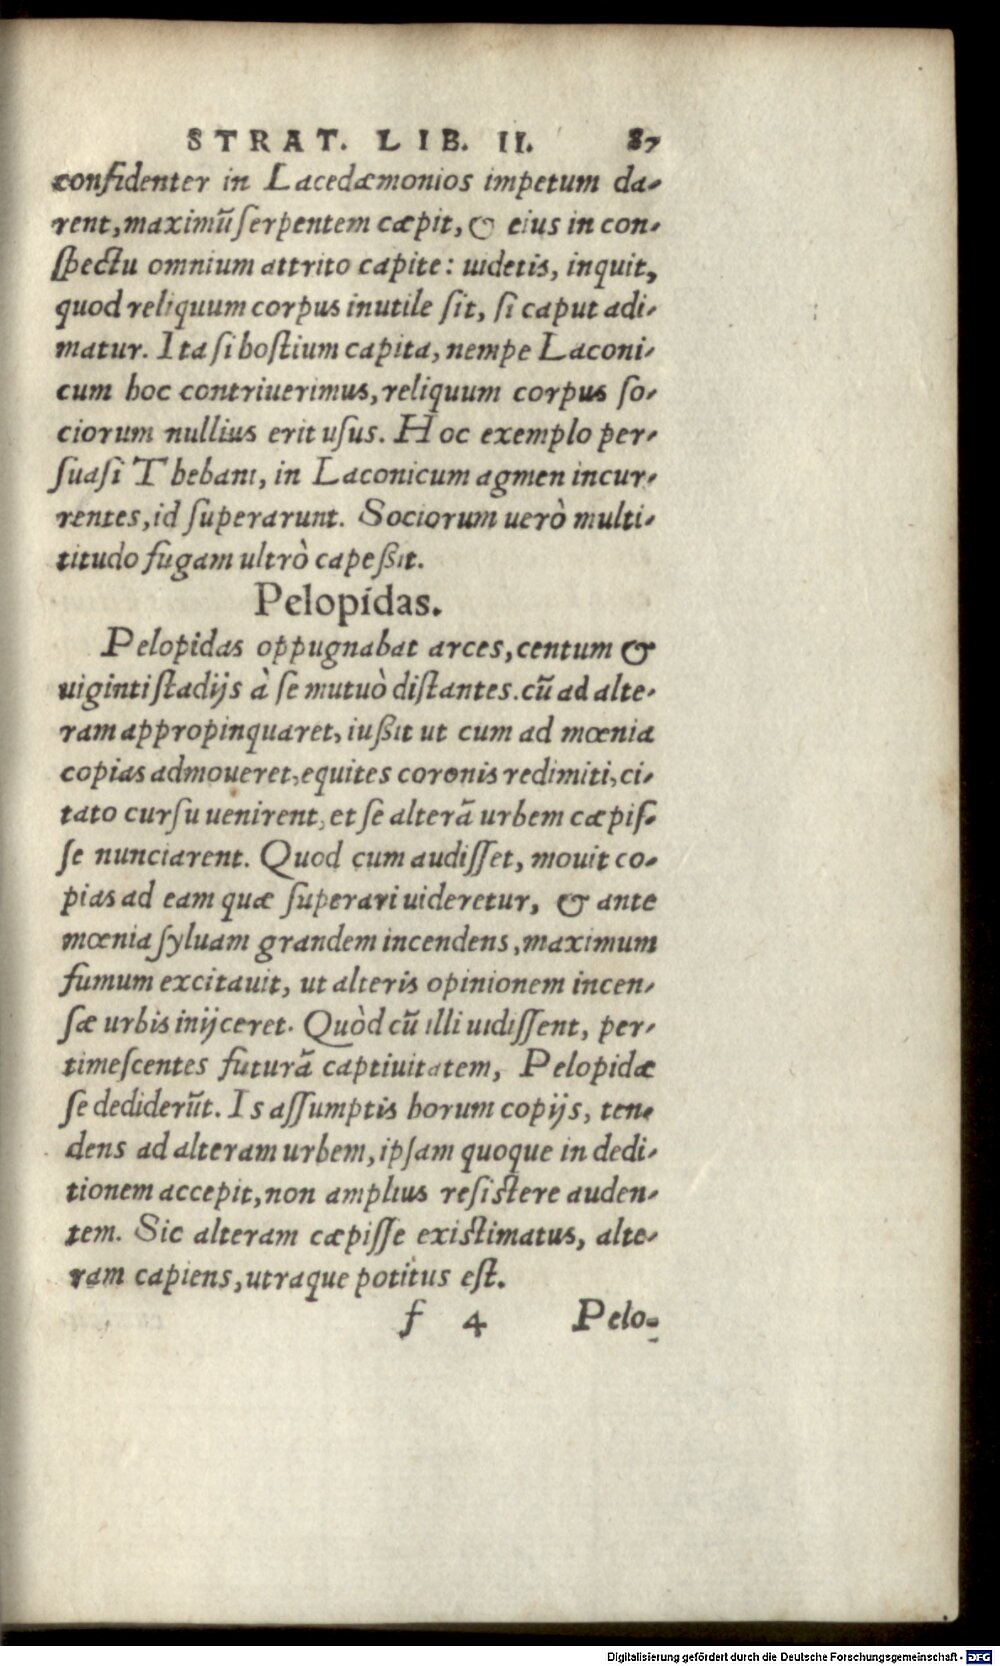 STRAT. LIB. II. 87
confidenter in Lacedæmonios impetum da-
rent, maximũ ſerpentem cæpit, & eius in con-
ſpectu omnium attrito capite: uidetis, inquit,
quod reliquum corpus inutile ſit, ſi caput adi-
matur. Ita ſi hoſtium capita, nempe Laconi-
cum hoc contriuerimus, reliquum corpus ſo-
ciorum nullius erit uſus. Hoc exemplo per-
ſuaſi Thebani, in Laconicum agmen incur-
rentes, id ſuperarunt. Sociorum uerò multi-
titudo fugam ultrò capeßit.
Pelopidas.
Pelopidas oppugnabat arces, centum &
uiginti ſtadijs à ſe mutuò diſtantes. cũ ad alte-
ram appropinquaret, iußit ut cum ad mœnia
copias admoueret, equites coronis redimiti, ci-
tato curſu uenirent, et ſe alterã urbem cæpiſ-
ſe nunciarent. Quod cum audiſſet, mouit co-
pias ad eam quæ ſuperari uideretur, & ante
mœnia ſyluam grandem incendens, maximum
fumum excitauit, ut alteris opinionem incen-
ſæ urbis inijceret. Quòd cũ illi uidiſſent, per-
timeſcentes futurã captiuitatem, Pelopidæ
ſe dediderũt. Is aſſumptis horum copijs, ten-
dens ad alteram urbem, ipſam quoque in dedi-
tionem accepit, non amplius reſiſtere auden-
tem. Sic alteram cæpiſſe exiſtimatus, alte-
ram capiens, utraque potitus eſt.
f 4 Pelo-
Digitalisierung gefördert durch die Deutsche Forschungsgemeinschaft - DFG